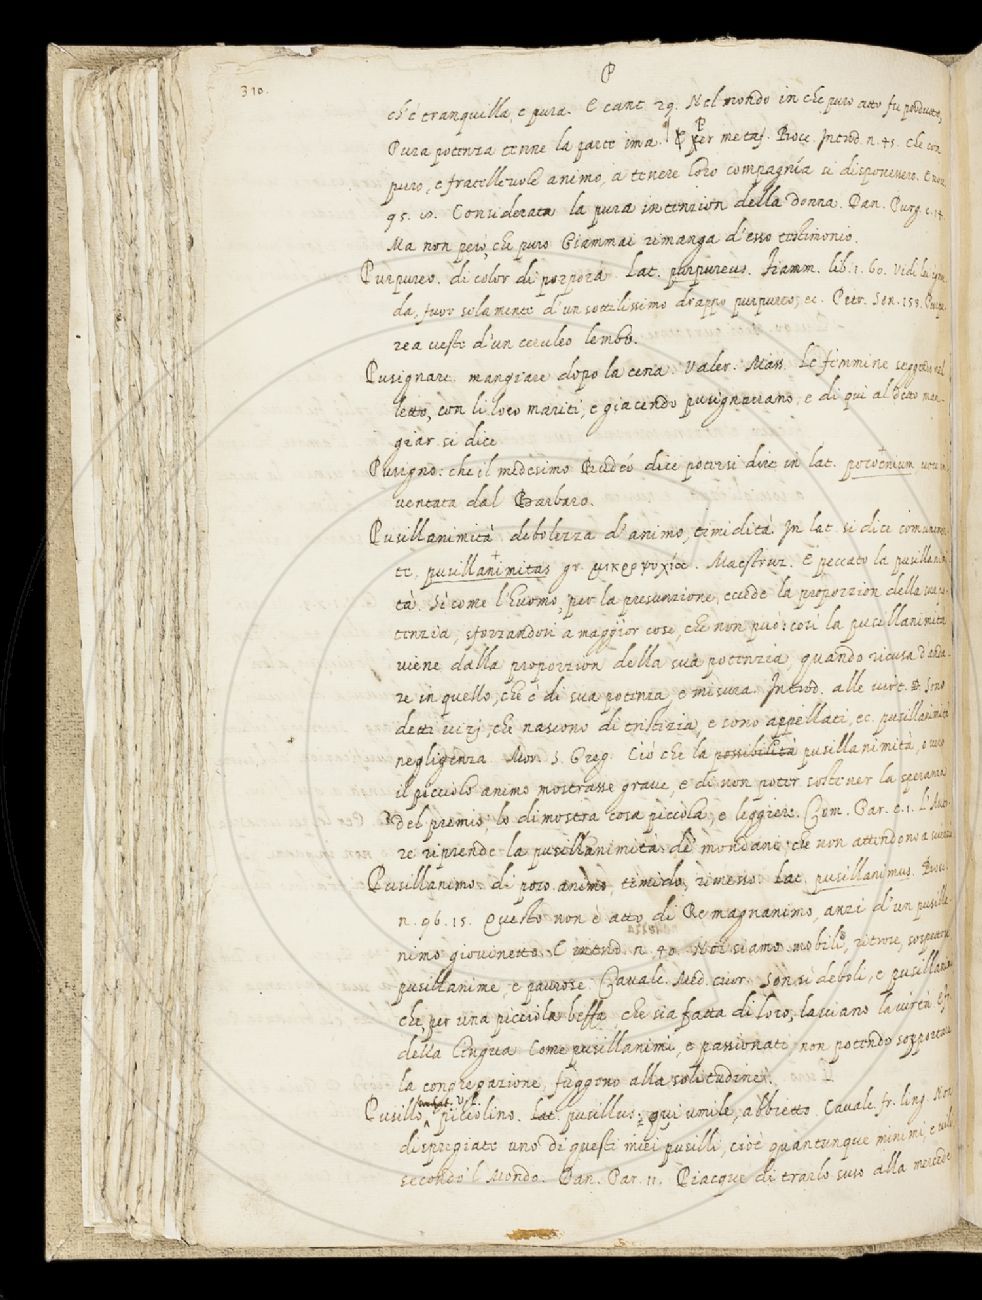 310.
P
ch'è tranquilla, e pura. E cant. 29. Nel mondo in che puro atto fu produtto,
Pura potenzia tenne la parte ima. ¶ Per metaf. Bocc. Introd. n. 45. Che con
puro, e fratellevole animo, a tenere loro compagnía si disponessero. E nov.
95. 10. Considerata la pura intenzion della donna. Dan. Purg. c.
Ma non però, che puro Giammai rimanga d'esso testimonio.
Purpureo. di color di porpora. Lat. purpureus. Fiamm. lib. 1. 60. Vidi lei
da, fuor solamente d'un sottilissimo drappo purpureo, ec. Petr. Son. 153. Purpu-
rea vesta d'un ceruleo lembo.
Pusignare. mangiare dopo la cena. Valer. Mass. Le femmine
letto, con li loro mariti, e giacendo pusignavano, e di qui al detto man-
giar si dice
Pusigno: che il medesimo Budeo dice potersi dire in lat. pocoenium, voce in-
ventata dal Barbaro.
Pusillanimità. debolezza d'animo, timidità. In lat. si dice comunemen-
te. pusillanimitas gr. μικροψυχία. Maestruz. È peccato la pusillanimi-
tà. Sì come l'huomo, per la presunzione, eccede la proporzion della sua po-
tenzia, sforzandosi a maggior cose, che non può: così la pusillanimità
viene dalla proporzion della sua potenzia, quando ricusa d'anda-
re in quello, che è di sua potenza, e misura. Introd. alle virt. Sono
detti vizj, che nascono di tristizia, e sono appellati, ec. pusillanimità
negligenza. Mor. S. Greg. Ciò che la possibilità pusillanimità, o vero
il picciolo animo mostrasse grave, e di non poter sostener la speranza
del premio, lo dimostra cosa picciola, e leggiere. Com. Par. c. 1. L'Auto-
re riprende la pusillanimità de' mondani, che non attendono a
Pusillanimo. di poco animo, timido, rimesso. Lat. pusillanimus. Bocc.
n. 96. 15. Questo non è atto di Re magnanimo, anzi d'un pusilla-
nimo giovinetto. E introd. n. 40. Noi siamo mobili, ritrose, sospettose
pusillanime, e paurose. Cavalc. Med. cuor. Son sì deboli, e pusillanimi
che, per una picciola beffa, che sia fatta di loro, lasciano la virtù. E fr.
della lingua. Come pusillanimi, e passionati, non potendo sopportare
la congregazione, fuggono alla solitudine.
Pusillo, piccolino. Lat. pusillus: qui umile, abbietto. Cavalc. fr. ling. Non
dispregiate uno di questi miei pusilli, cioè quantunque minimi, e vili
secondo 'l Mondo. Dan. Par. 11. Piacque di trarlo suso alla mercede